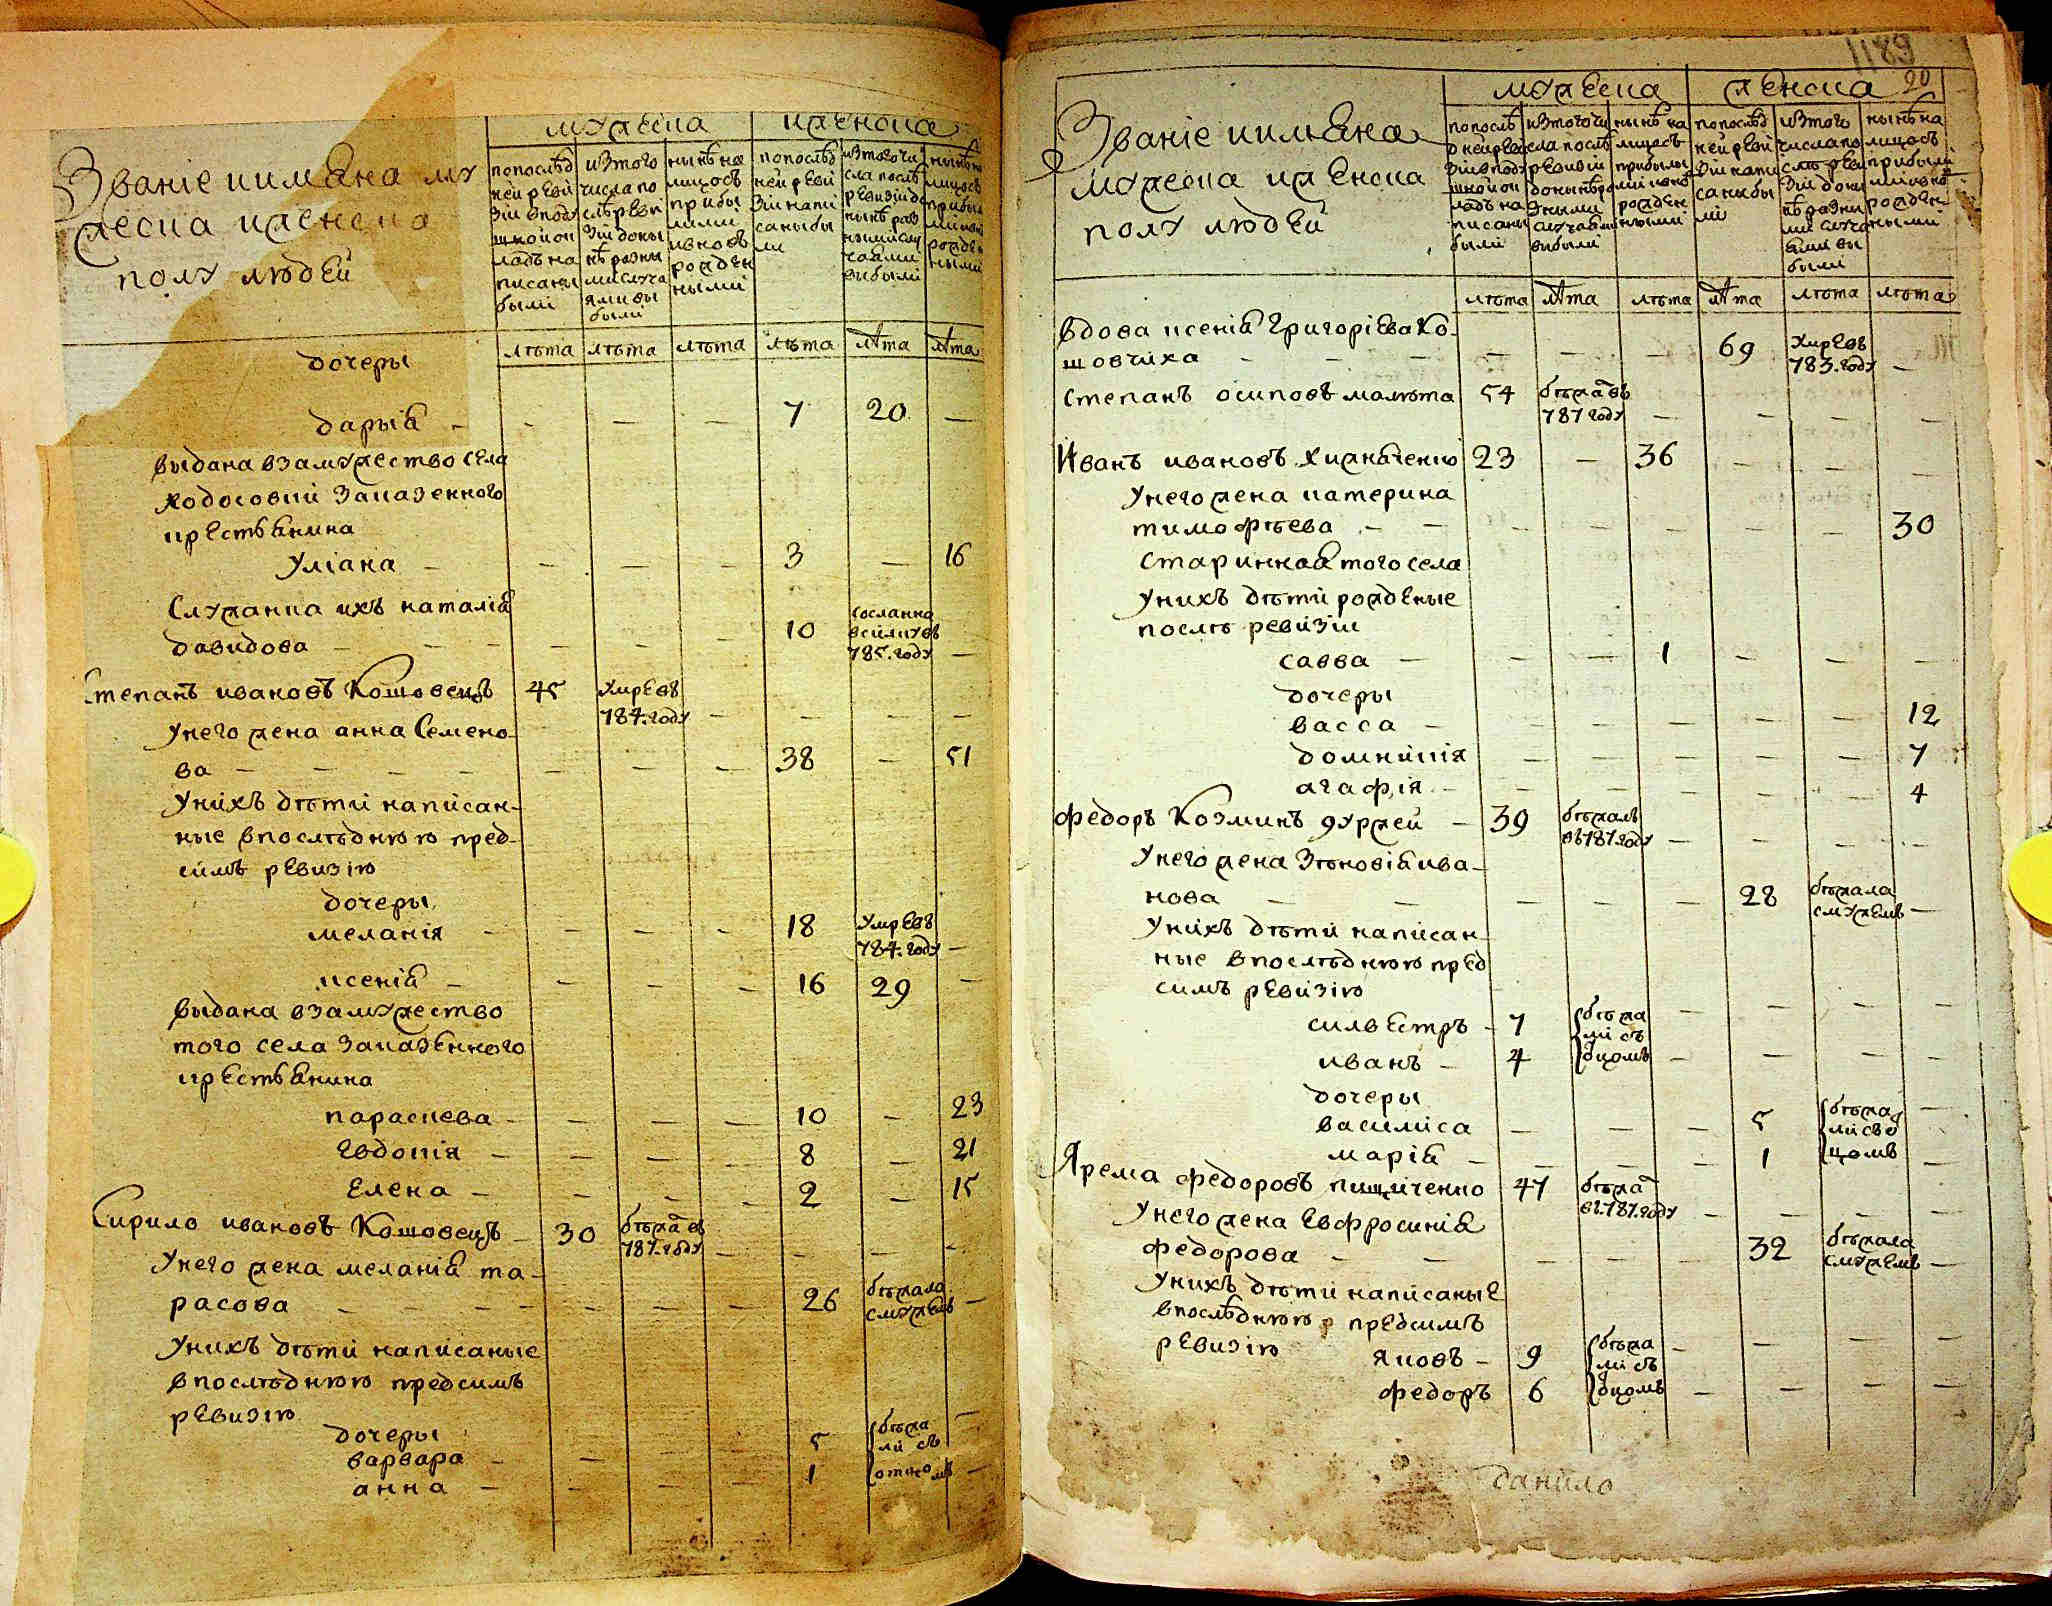 Званіе иимѧна му
жеска иженска
полу людей
мужеска
иженска
попослѣд
ней реви
зіи вподу
шной ок
ладъ на
писаны
были
изтого
числа по
слѣ реви
зіи доны
нѣ разны
ми случа
ями вы
были
нынѣ на
лицо съ
прибы
лыми
ивновь
рожден
ными
попослѣд
ней реви
зіи напи
саны бы
ли
изтого чи
сла послѣ
ревизіи до
нынѣ раз
ными слу
чаями
выбыли
лѣта лѣта лѣта лѣта лѣта лѣта
дочеры
дарыя - - - - 7 20 -
выдана взамужество села
ходосовки Заказенного
крестьянина
уліана - - - - 3 - 16
Служанка ихъ наталія
давидова - - - - 10 сосланна
всилкувъ
785. году -
Степанъ ивановъ Кошовецъ 45 умре въ
784. году - - - -
Унего жена анна Семено-
ва - - - - 38 - 51
Унихъ дѣти написан-
ные впослѣднюю пред-
симъ ревизію
дочеры
меланія - - - - 18 умре въ
784. году -
ксенія - - - - 16 29 -
выдана взамужество
того села Заказенного
крестьянина
параскева - - - - 10 - 23
Евдокія - - - - 8 - 21
Елена - - - - 2 - 15
Кирило ивановъ Кошовецъ - 30 бѣжа въ
787. году - - - -
Унего жена меланія та-
расова - - - - 26 бѣжала
смужемъ -
Унихъ дѣти написаные
впослѣднюю предсимъ
ревизію
дочеры
варвара - - 5 бѣжа
ли съ -
анна - - - - 1 отцомъ -
1189
20
Званіе иимѧна
мужеска иженска
полу людей
мужеска
женска
изтого чи
сла послѣ
ревизіи
донынѣ ра
зными
случаями
выбыли
нынѣ на
лицо съ
прибылы
ми ивно
рожден
ными
попослѣд
ней реви
зіи напи
саны бы
ли
изтого
числа по
слѣ реви
зіи доны
нѣ разны
ми случа
ями вы
были
нынѣ на
лицо съ
прибылы
ми ивно
рожден
ными
лѣта лѣта лѣта лѣта лѣта лѣта
Вдова ксенія Григоріева Ко-
шовчиха - - - - 69 умре въ
783. году -
Степанъ осиповъ малюта 54 бѣжа въ
787 году - - - -
Иванъ ивановъ Хижнѧченко 23 - 36 - - -
Унего жена катерина
тимофѣева - - - - - - 30
Стариннаѧ того села
Унихъ дѣти рожденые
послѣ ревизіи
савва - - - 1 - - -
дочеры
васса - - - - - - 12
домникія - - - - - 7
агафія - - - - - - 4
Федоръ Козминъ джуржей - 39 бѣжалъ
въ 787. году - - - -
Унего жена Зѣновія ива-
нова - - - - - 28 бѣжала
смужемъ -
Унихъ дѣти написан-
ные впослѣднюю пред
симъ ревизію
силвестръ - 7 бѣжа
ли съ - - - -
иванъ - 4 оцомъ - - - -
дочеры
василиса - - - 5 бѣжа
ли съ о -
марія - - - - 1 цомъ -
Ярема федоровъ пищиченко 47 бѣжа
въ 787. году - - - -
Унего жена Евфросинія
федорова - - - - - 32 бѣжала
смужемъ -
Унихъ дѣти написаные
впослѣднюю предсимъ
ревизію
яковъ - 9 бѣжа
ли съ - - - -
федоръ 6 оцомъ - - - -
данило